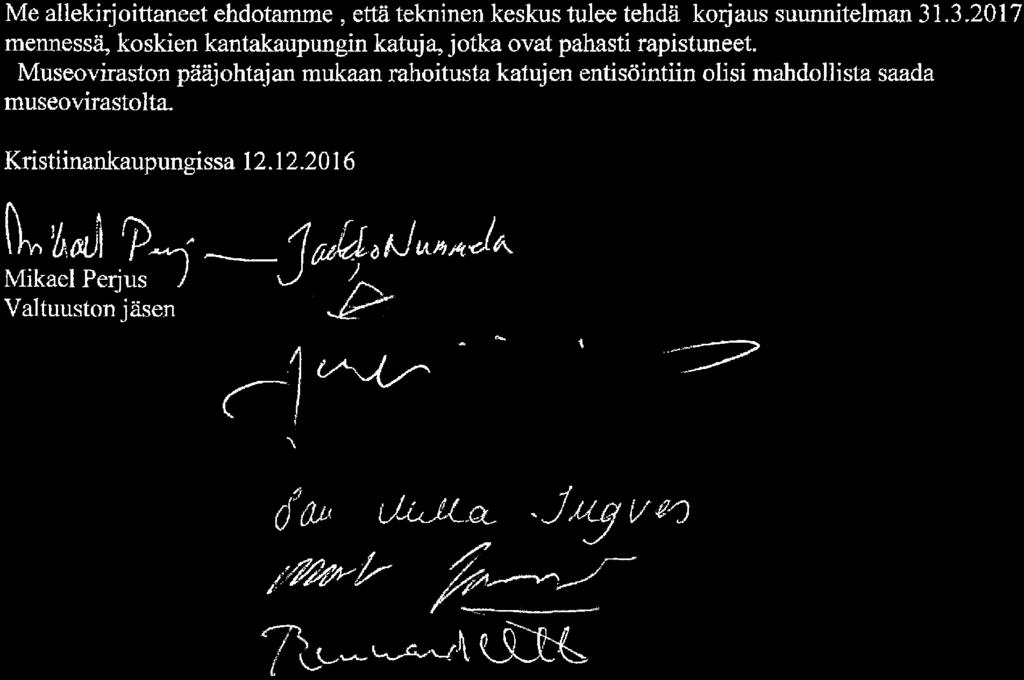 Me allekirjoittaneet ehdotamme , että tekninen keskus tulee tehdä korjaus suunnitelman 31.3.2017
mennessä, koskien kantakaupungin katuja, jotka ovat pahasti rapistuneet.
Museoviraston pääjohtajan mukaan rahoitusta katujen entisöintiin olisi mahdollista saada
museovirastolta.
Kristiinankaupungissa 12.12.2016
Mikael Perj Jaakko Nummela
Mikael Perjus
Valtuuston jäsen
Ulla Ingves